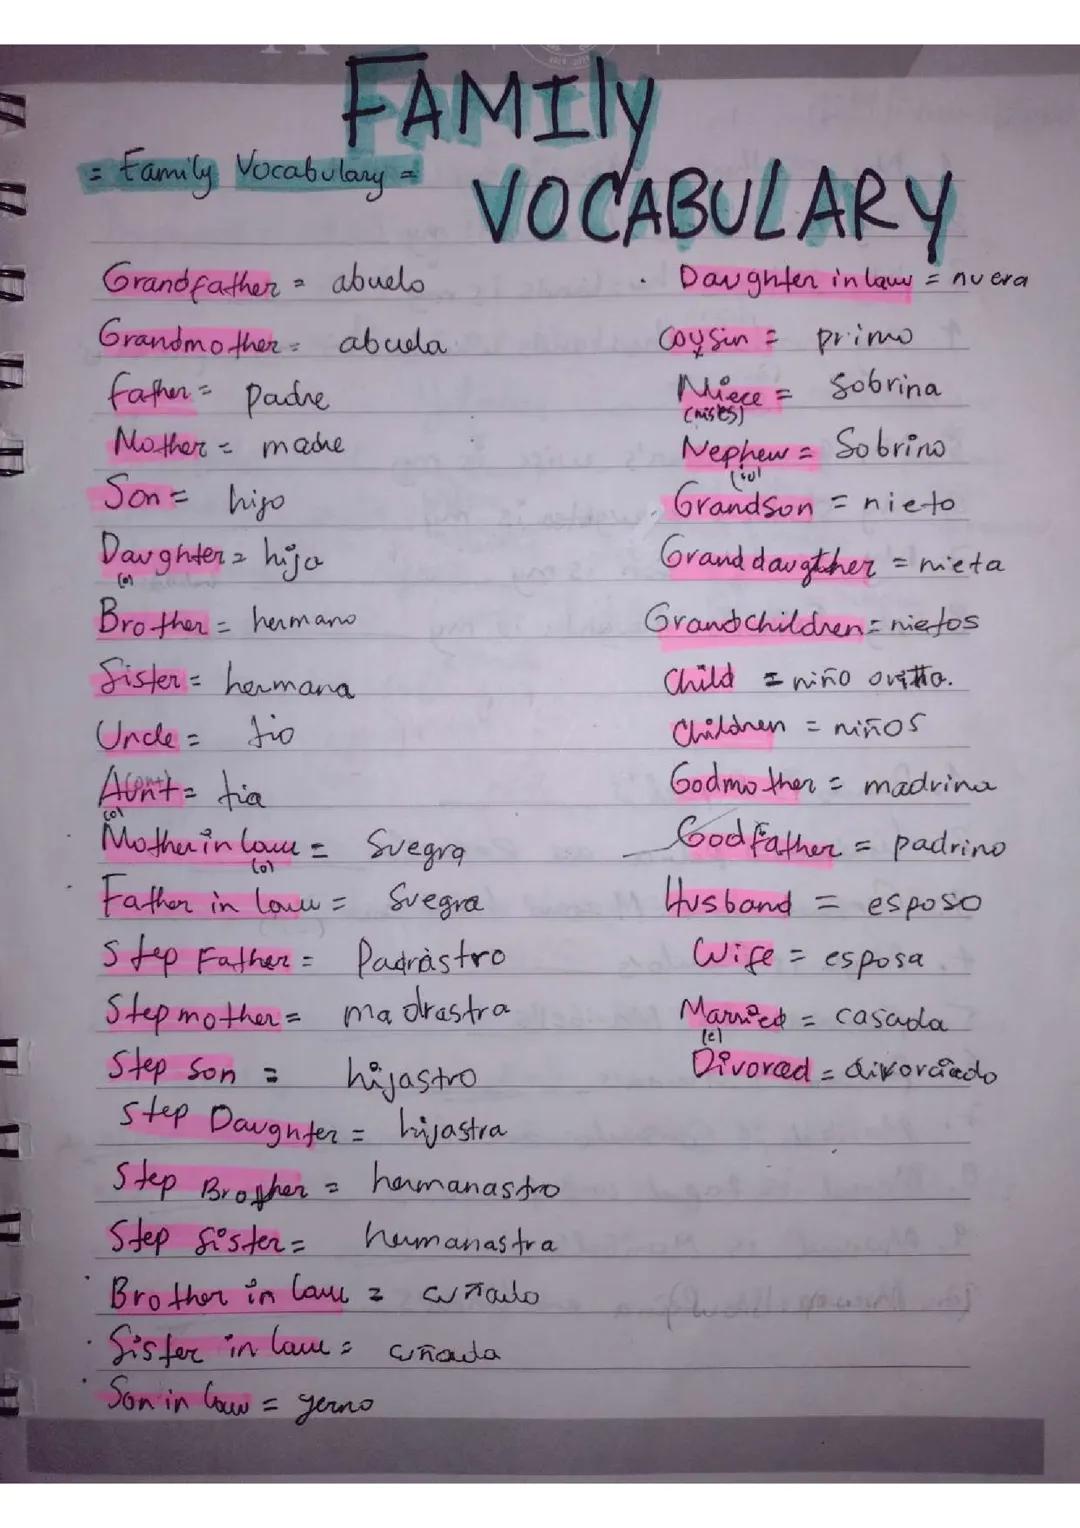 FAMIly
VOCABULARY
= Family Vocabulary =
Grandfather = abuelo
Grandmother = abuela
father = padre
Mother = madre
Son = hijo
Daughter = hija
(o)
Brother = hermano
Sister = hermana
Uncle = tio
Aunt = tia
(o)
Mother in law = Suegra
(o)
Father in law = Suegra
Step Father = Padrastro
Step mother = madrastra
Step Son = hijastro
Step Daughter = hijastra
Step Brother = hermanastro
Step Sister = hermanastra
Brother in law = cuñado
Sister in law = cuñada
Son in law = yerno
Daughter in law = nuera
Cousin = primo
Niece = Sobrina
Nephew = Sobrino
Grandson = nieto
Grand daugther = nieta
Grandchildren = nietos
Child = niño
Children = niños
Godmother = madrina
God father = padrino
Husband = esposo
Wife = esposa
Married = casada
(e)
Divorced = divorciado